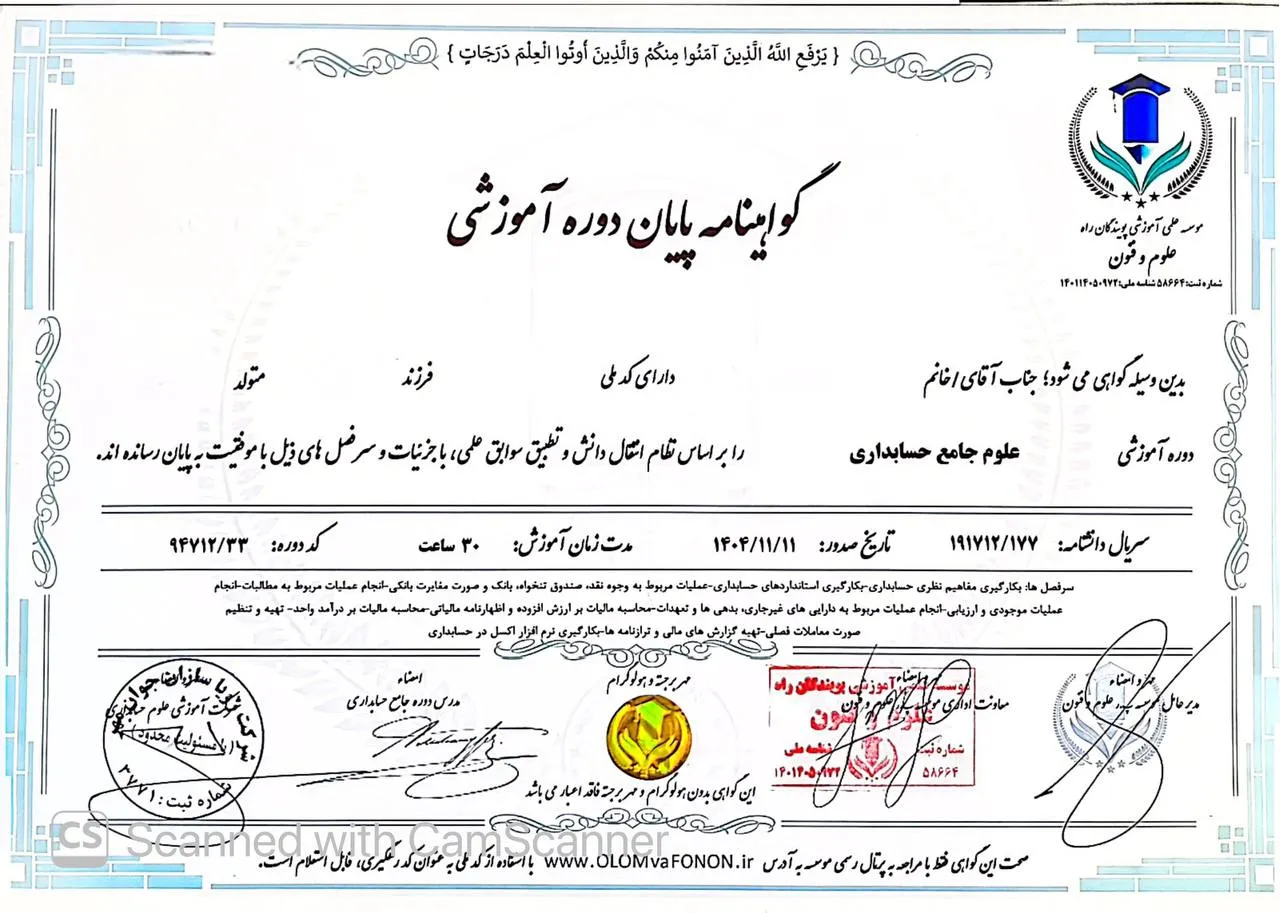 { يَرْفَعِ اللَّهُ الَّذِينَ آمَنُوا مِنكُمْ وَالَّذِينَ أُوتُوا الْعِلْمَ دَرَجَاتٍ }
موسسه علمی آموزشی پویندگان راه
علوم و فنون
شماره ثبت:۵۸۶۶۴ شناسه ملی:۱۴۰۱۱۴۰۵۰۹۷۲
گواهینامه پایان دوره آموزشی
بدین وسیله گواهی می شود؛ جناب آقای / خانم دارای کد ملی فرزند متولد
دوره آموزشی علوم جامع حسابداری را بر اساس نظام انتقال دانش و تطبیق سوابق علمی، با جزئیات و سرفصل های ذیل با موفقیت به پایان رسانده اند.
سریال دانشنامه: ۱۹۱۷۱۲/۱۷۷ تاریخ صدور: ۱۴۰۴/۱۱/۱۱ مدت زمان آموزش: ۳۰ ساعت کد دوره: ۹۴۷۱۲/۳۳
سرفصل ها: بکارگیری مفاهیم نظری حسابداری-بکارگیری استانداردهای حسابداری-عملیات مربوط به وجوه نقد، صندوق تنخواه، بانک و صورت مغایرت بانکی-انجام عملیات مربوط به مطالبات-انجام
عملیات موجودی و ارزیابی-انجام عملیات مربوط به دارایی های غیرجاری، بدهی ها و تعهدات-محاسبه مالیات بر ارزش افزوده و اظهارنامه مالیاتی-محاسبه مالیات بر درآمد واحد- تهیه و تنظیم
صورت معاملات فصلی-تهیه گزارش های مالی و ترازنامه ها-بکارگیری نرم افزار اکسل در حسابداری
مهر و امضاء
مدیر عامل موسسه علوم و فنون
مهر و امضاء
معاونت اداری موسسه علوم و فنون
موسسه آموزشی پویندگان راه
شماره ثبت
۵۸۶۶۴
شناسه ملی
مهر برجته و هولوگرام
این گواهی بدون هولوگرام و مهر برجته فاقد اعتبار می باشد
امضاء
مدرس دوره جامع حسابداری
شرکت آموزشی علوم حسابداری
(با مسئولیت محدود)
شماره ثبت: ۲۷۷۱
CS Scanned with CamScanner
صحت این گواهی فقط با مراجعه به پرتال رسمی موسسه به آدرس www.OLOMvaFONON.ir با استفاده از کد ملی به عنوان کد رهگیری، قابل استعلام است.